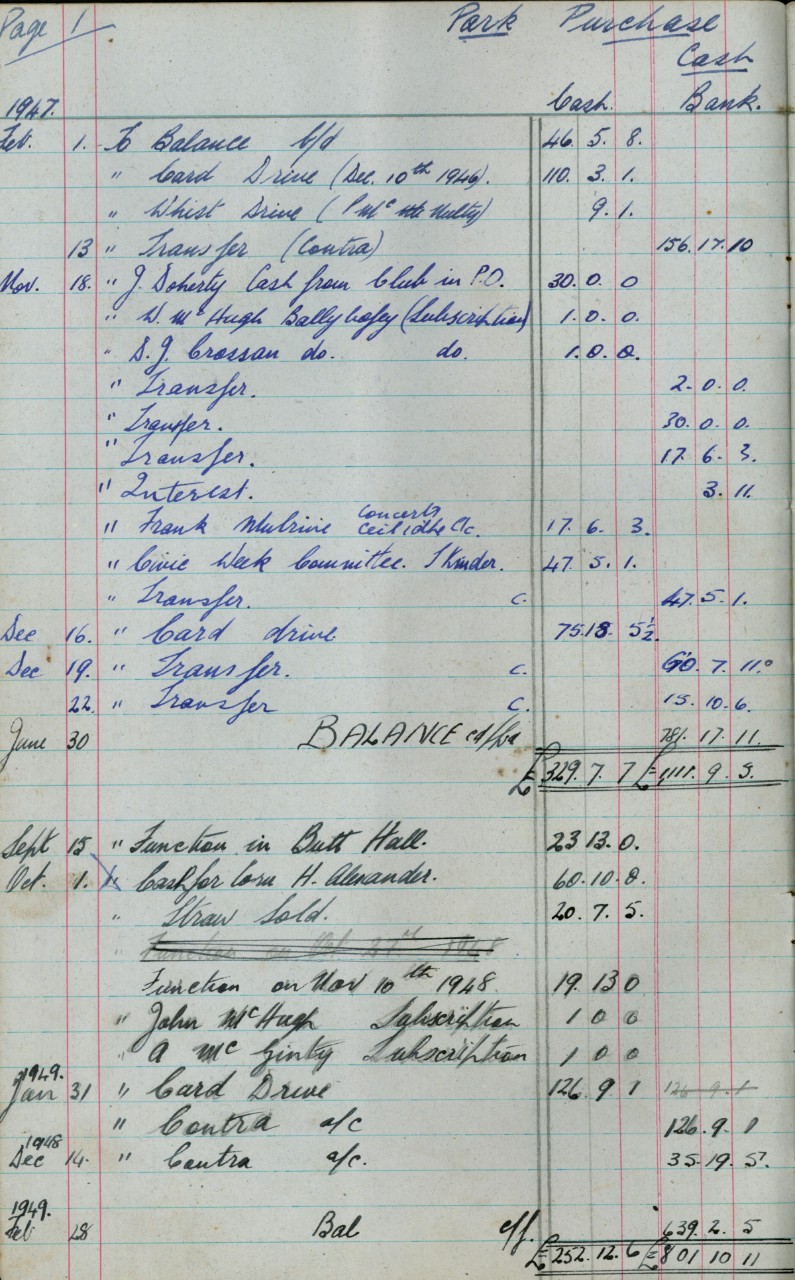 Page 1 Park Purchase
Cash
1947. Cash. Bank.
Feb. 1. To Balance b/d 46. 5. 8.
" Card Drive (Dec. 10th 1946). 110. 3. 1.
" Whist Drive (P Mc Nulty) 9. 1.
13 " Transfer (Contra) 156. 17. 10
Nov. 18. " J. Doherty Cash from Club in P.O. 30. 0. 0
" W. McHugh Ballybofey (Subscription) 1. 0. 0.
" D. J. Crossan do. do. 1. 0. 0.
" Transfer. 2. 0. 0.
" Transfer. 30. 0. 0.
" Transfer. 17. 6. 3.
" Interest. 3. 11.
" Frank Mulrine Concerts Ceilidhe Etc. 17. 6. 3.
" Civic Week Committee. J Kinder. 47. 5. 1.
" Transfer. C. 47. 5. 1.
Dec 16. " Card drive 75. 18. 5½
Dec 19. " Transfer. C. 60. 7. 11.
22. " Transfer C. 15. 10. 6.
June 30 BALANCE 781. 17. 11.
£ 329. 7. 7 £ 1111. 9. 5.
Sept 15 " Function in Butt Hall. 23 13. 0.
Oct. 1. " Cash for Corn H. Alexander. 60. 10. 0.
" Straw Sold. 20. 7. 5.
Function on Oct 27th 1948
Function on Nov 10th 1948 19. 13 0
" John McHugh Subscription 1 0 0
" A McGinty Subscription 1 0 0
1949.
Jan 31 " Card Drive 126. 9 1 126 9. 1
" Contra a/c 126. 9. 1
1948
Dec 14. " Contra a/c. 35. 19. 5.
1949.
Feb 28 Bal c/f. 639. 2. 5
£ 252. 12. 6 £ 801 10 11